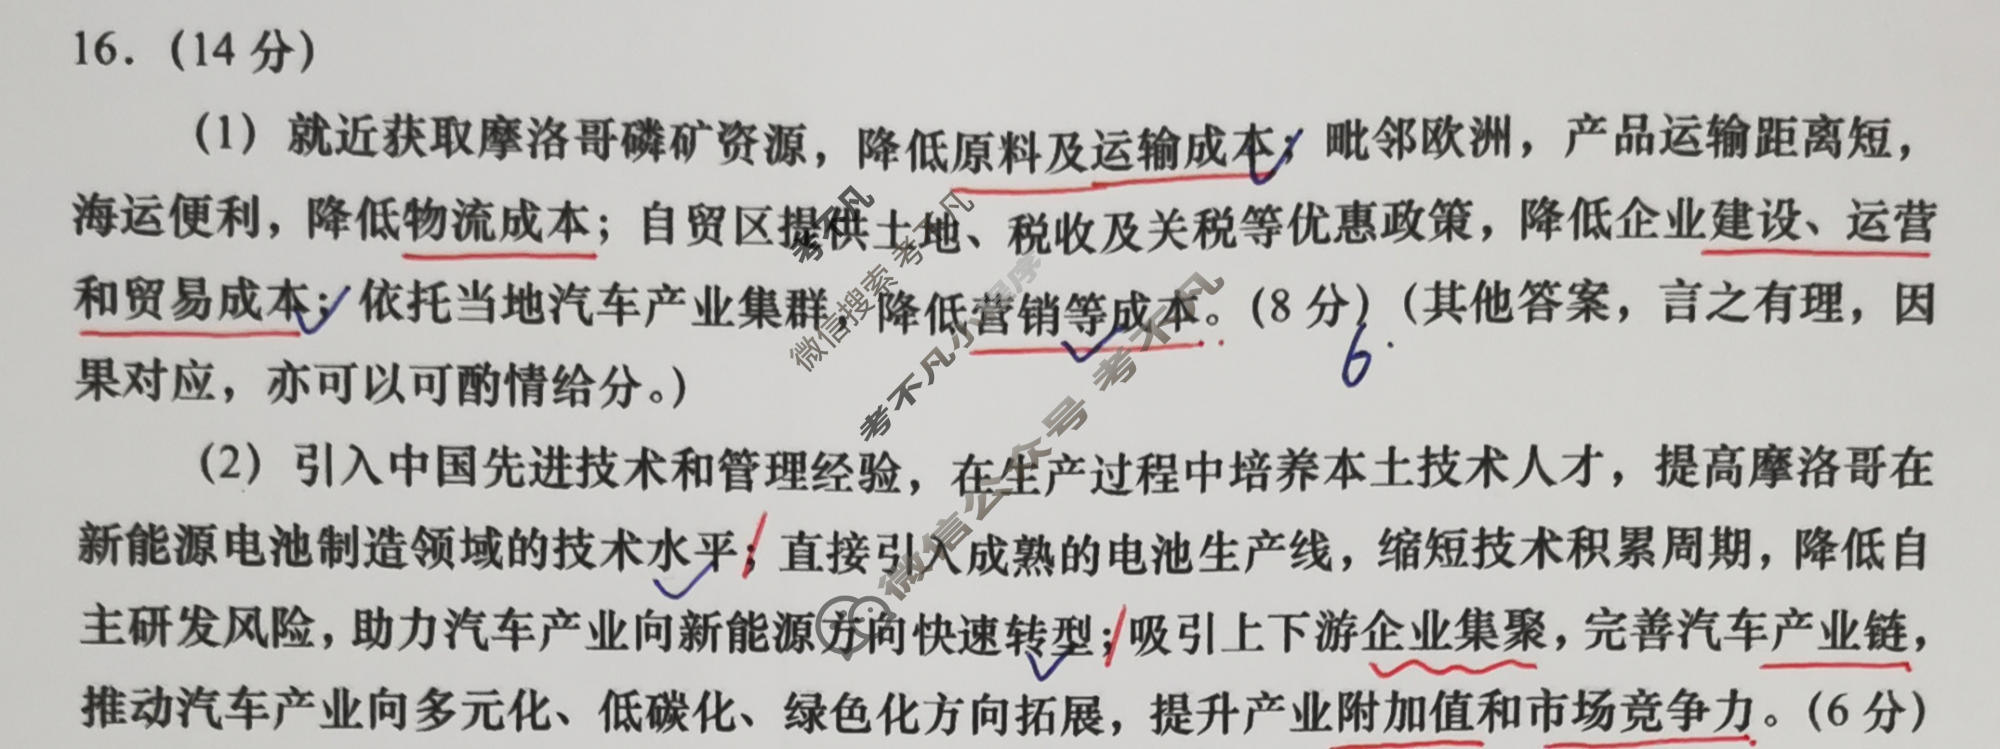 16.（14 分）
（1）就近获取摩洛哥磷矿资源，降低原料及运输成本；毗邻欧洲，产品运输距离短，
海运便利，降低物流成本；自贸区提供土地、税收及关税等优惠政策，降低企业建设、运营
和贸易成本；依托当地汽车产业集群，降低营销等成本。（8 分）（其他答案，言之有理，因
6.
果对应，亦可以可酌情给分。）
（2）引入中国先进技术和管理经验，在生产过程中培养本土技术人才，提高摩洛哥在
新能源电池制造领域的技术水平；直接引入成熟的电池生产线，缩短技术积累周期，降低自
主研发风险，助力汽车产业向新能源方向快速转型；吸引上下游企业集聚，完善汽车产业链，
推动汽车产业向多元化、低碳化、绿色化方向拓展，提升产业附加值和市场竞争力。（6 分）
考不凡
微信搜索 考不凡
考不凡小程序
微信公众号 考不凡